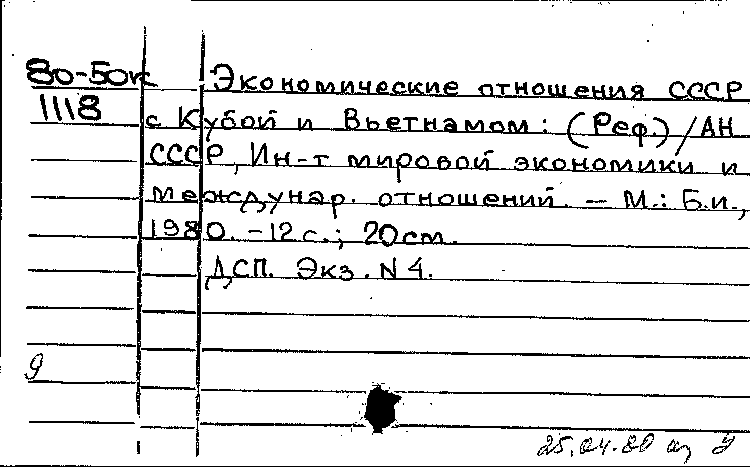 80-50к Экономические отношения СССР
1118 с Кубой и Вьетнамом: (Реф.) / АН
СССР, Ин-т мировой экономики и
междунар. отношений. – М.: Б.и.,
1980. – 12 с.; 20 см.
ДСП. Экз. N 4.
9
25.04.80